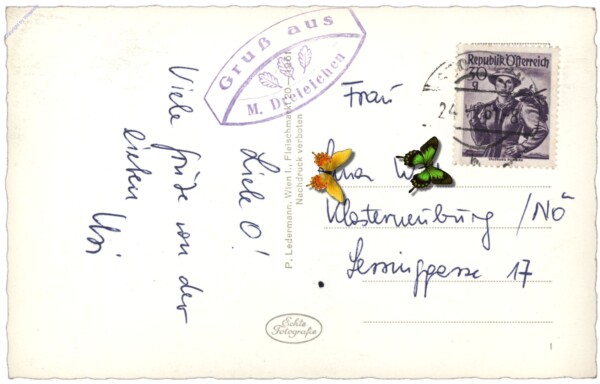 Gruß aus
M. Dreieichen
Liebe O!
Viele Grüße von der
lieben Usi
P. Ledermann, Wien I., Fleischmarkt 20 – 1961
Nachdruck verboten
Echte
Fotografie
Republik Österreich
30
g
24
Frau
Klosterneuburg / NÖ
Lessinggasse 17
1